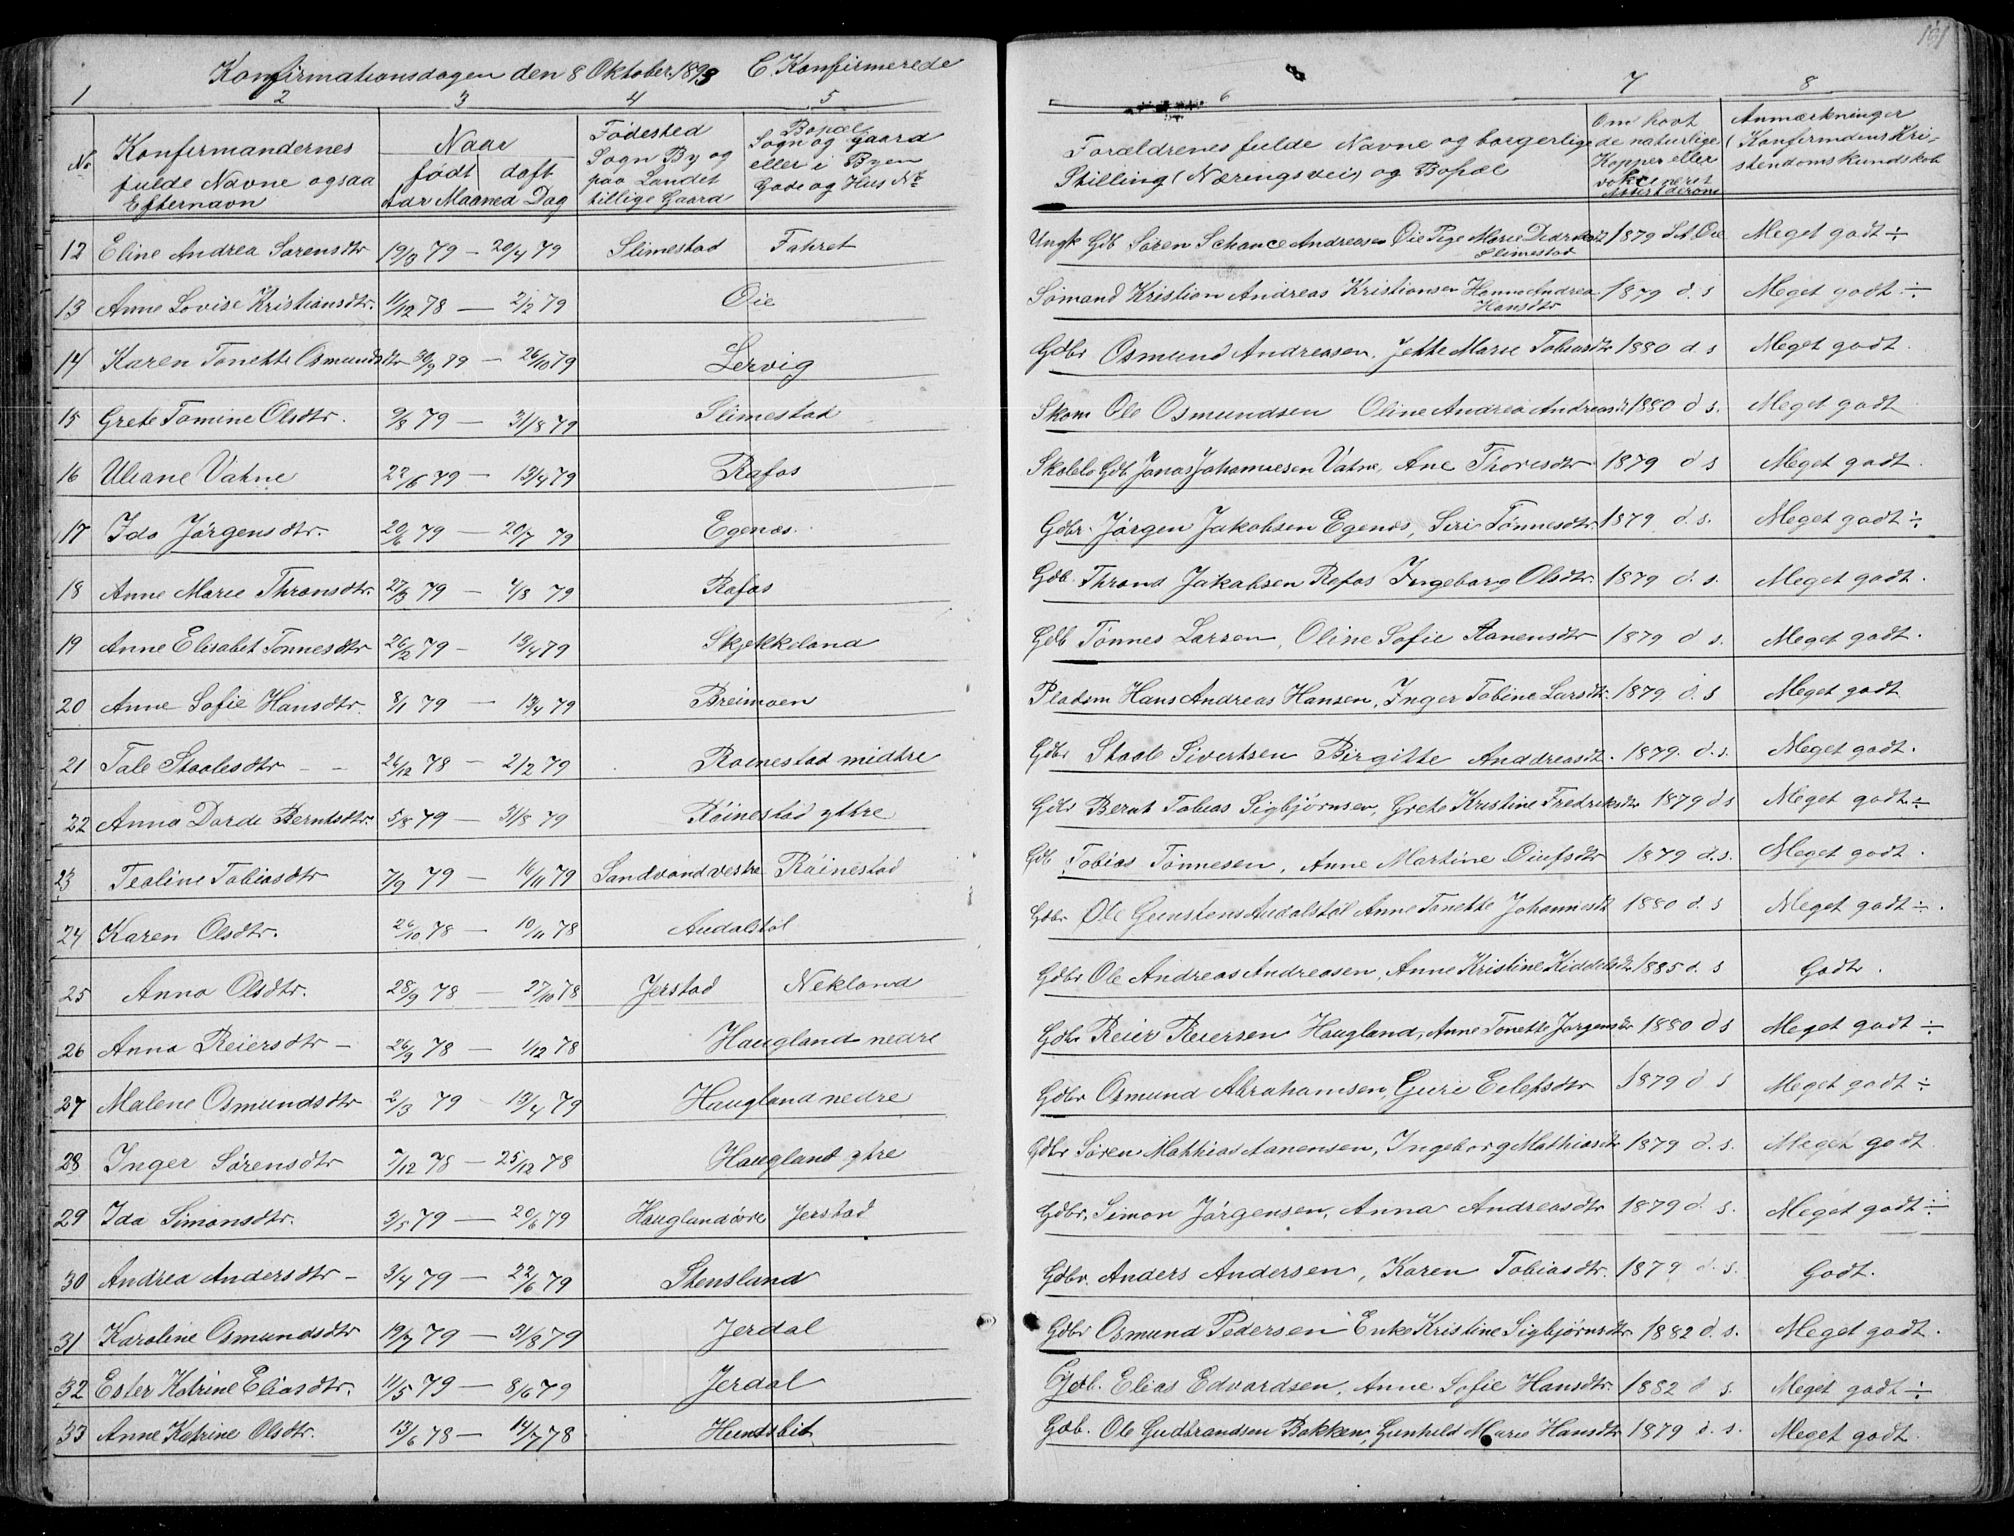 161
Konfirmationsdagen den 8 Oktober 1893 C. Konfirmerede
1 2 3 4 5 6 7 8
No Konfirmandernes fulde Navne ogsaa Efternavn
Naar født døft Aar Maaned Dag
Fødested Sogn By og paa Landet tillige Gaard
Bopæl Sogn og Gaard eller i Byen Gade og Hus No
Forældrenes fulde Navne og borgerlige Stilling (Næringsvei) og Bopæl
Om havt de naturlige Kopper eller vakcineret
Anmærkninger (Konfirmdens Kristendomskundskab
12 Eline Andrea Sørensdtr 19/3 79 – 20/4 79 Slimestad Fahret Ungk Gdb Søren Schance Andreasen Øie Pige Marie Slimestad 1879 Meget godt ÷
13 Anne Lovise Kristiansdtr. 11/12 78 – 2/2 79 Øie Sømand Kristian Andreas Kristiansen Hanna Andrea Hansdtr 1879 d. s Meget godt ÷
14 Karen Tonette Osmundsdtr 30/9 79 – 26/10 79 Lervig Gdbr Osmund Andreasen, Jette Marie Tobiasdtr 1880 d s Meget godt.
15 Grete Tomine Olsdtr. 9/8 79 – 31/8 79 Slimestad Skom Ole Osmundsen Oline Andrea Andreasd 1880 d s. Meget godt
16 Uliane Vatne 22/6 79 – 13/4 79 Rafos Skolelo Gdb Jonas Johannesen Vatne, Ane Thoresdtr 1879 d s Meget godt.
17 Ida Jørgensdtr. 20/6 79 – 20/7 79 Egenæs. Gdbr. Jørgen Jakobsen Egenæs, Siri Tønnesdtr 1879 d. s. Meget godt ÷
18 Anne Marie Thronsdtr. 27/3 79 – 4/8 79 Rafos Gdb. Thrond Jakobsen Refos Ingeborg Olsdtr. 1879 d. s. Meget godt.
19 Anne Elisabet Tønnesdtr 26/12 79 – 13/4 79 Skjekkeland Gdb Tønnes Larsen, Oline Sofie Aanensdtr 1879 d s. Meget godt.
20 Anne Sofie Hansdtr. 8/1 79 – 13/4 79 Breimoen Pladsm Hans Andreas Hansen, Inger Tobine Larsdtr. 1879 d. s Meget godt
21 Tale Staalesdtr – – 26/12 78 – 2/2 79 Røinestad midtre Gdbr Staale Sivertsen Birgitte Anddreasdt. 1879. d. s. Meget godt.
22 Anna Dorde Berntsdtr. 5/8 79 – 31/8 79 Röinestad ytre Gdbr Bernt Tobias Sigbjørnsen, Grete Kristine Fredriksdtr 1879 d s Meget godt ÷
23 Tealine Tobiasdtr 7/9 79 – 16/11 79 Sandvand vestre Röinestad Gdb Tobias Tønnesen, Anne Martine Olufsdtr 1879 d. s. Meget godt.
24 Karen Olsdtr. 26/10 78 – 10/11 78 Audalstøl Gdbr Ole Gunstens Audalstøl Anne Tonette Johannesdt 1880 d. s Meget godt ÷.
25 Anna Olsdtr. 28/9 78 – 27/10 78 Jerstad Nekland Gdbr Ole Andreas Andreasen, Anne Kristine Kiddelsdtr 1885 d. s Godt.
26 Anna Reiersdtr – 26/9 78 – 1/12 78 Haugland nedre Gdbr Reier Reiersen Haugland, Anne Tonette Jørgensdtr 1880 d s Meget godt ÷
27 Malene Osmundsdtr 2/3 79 – 13/4 79 Haugland nedre Gdbr Osmund Abrahamsen, Guri Eilefsdtr 1879 d s Meget godt ÷
28 Inger Sørensdtr 7/12 78 – 25/12 78 Haugland ytre Gdbr Søren Mathias Aanensen, Ingeborg Mathiasdtr 1879 d. s. Meget godt.
29 Ida Simonsdtr. 3/5 79 – 20/6 79 Haugland øvre Jerstad Gdbr. Simon Jørgensen, Anna Andreasdtr 1879 d. s. Meget godt ÷
30 Andrea Andersdtr – 3/4 79 – 22/6 79 Stensland Gdbr. Anders Andersen, Karen Tobiasdtr. 1879 d. s. Godt.
31 Karoline Osmundsdtr 19/7 79 – 31/8 79 Jerdal Gdbr Osmund Pedersen Enke Kristine Sigbjørnsdtr 1882 d. s. Meget godt.
32 Ester Katrine Eliasdtr. 11/5 79 – 8/6 79 Jerdal Gdb. Elias Edvardsen, Anne Sofie Hansdtr. 1882 d s. Meget godt ÷
33 Anne Katrine Olsdtr. 13/6 78 – 14/7 78 Hundsbit Gdb. Ole Gudbrandsen Bakken, Gunhild Marie Hansdtr 1879 d. s. Meget godt